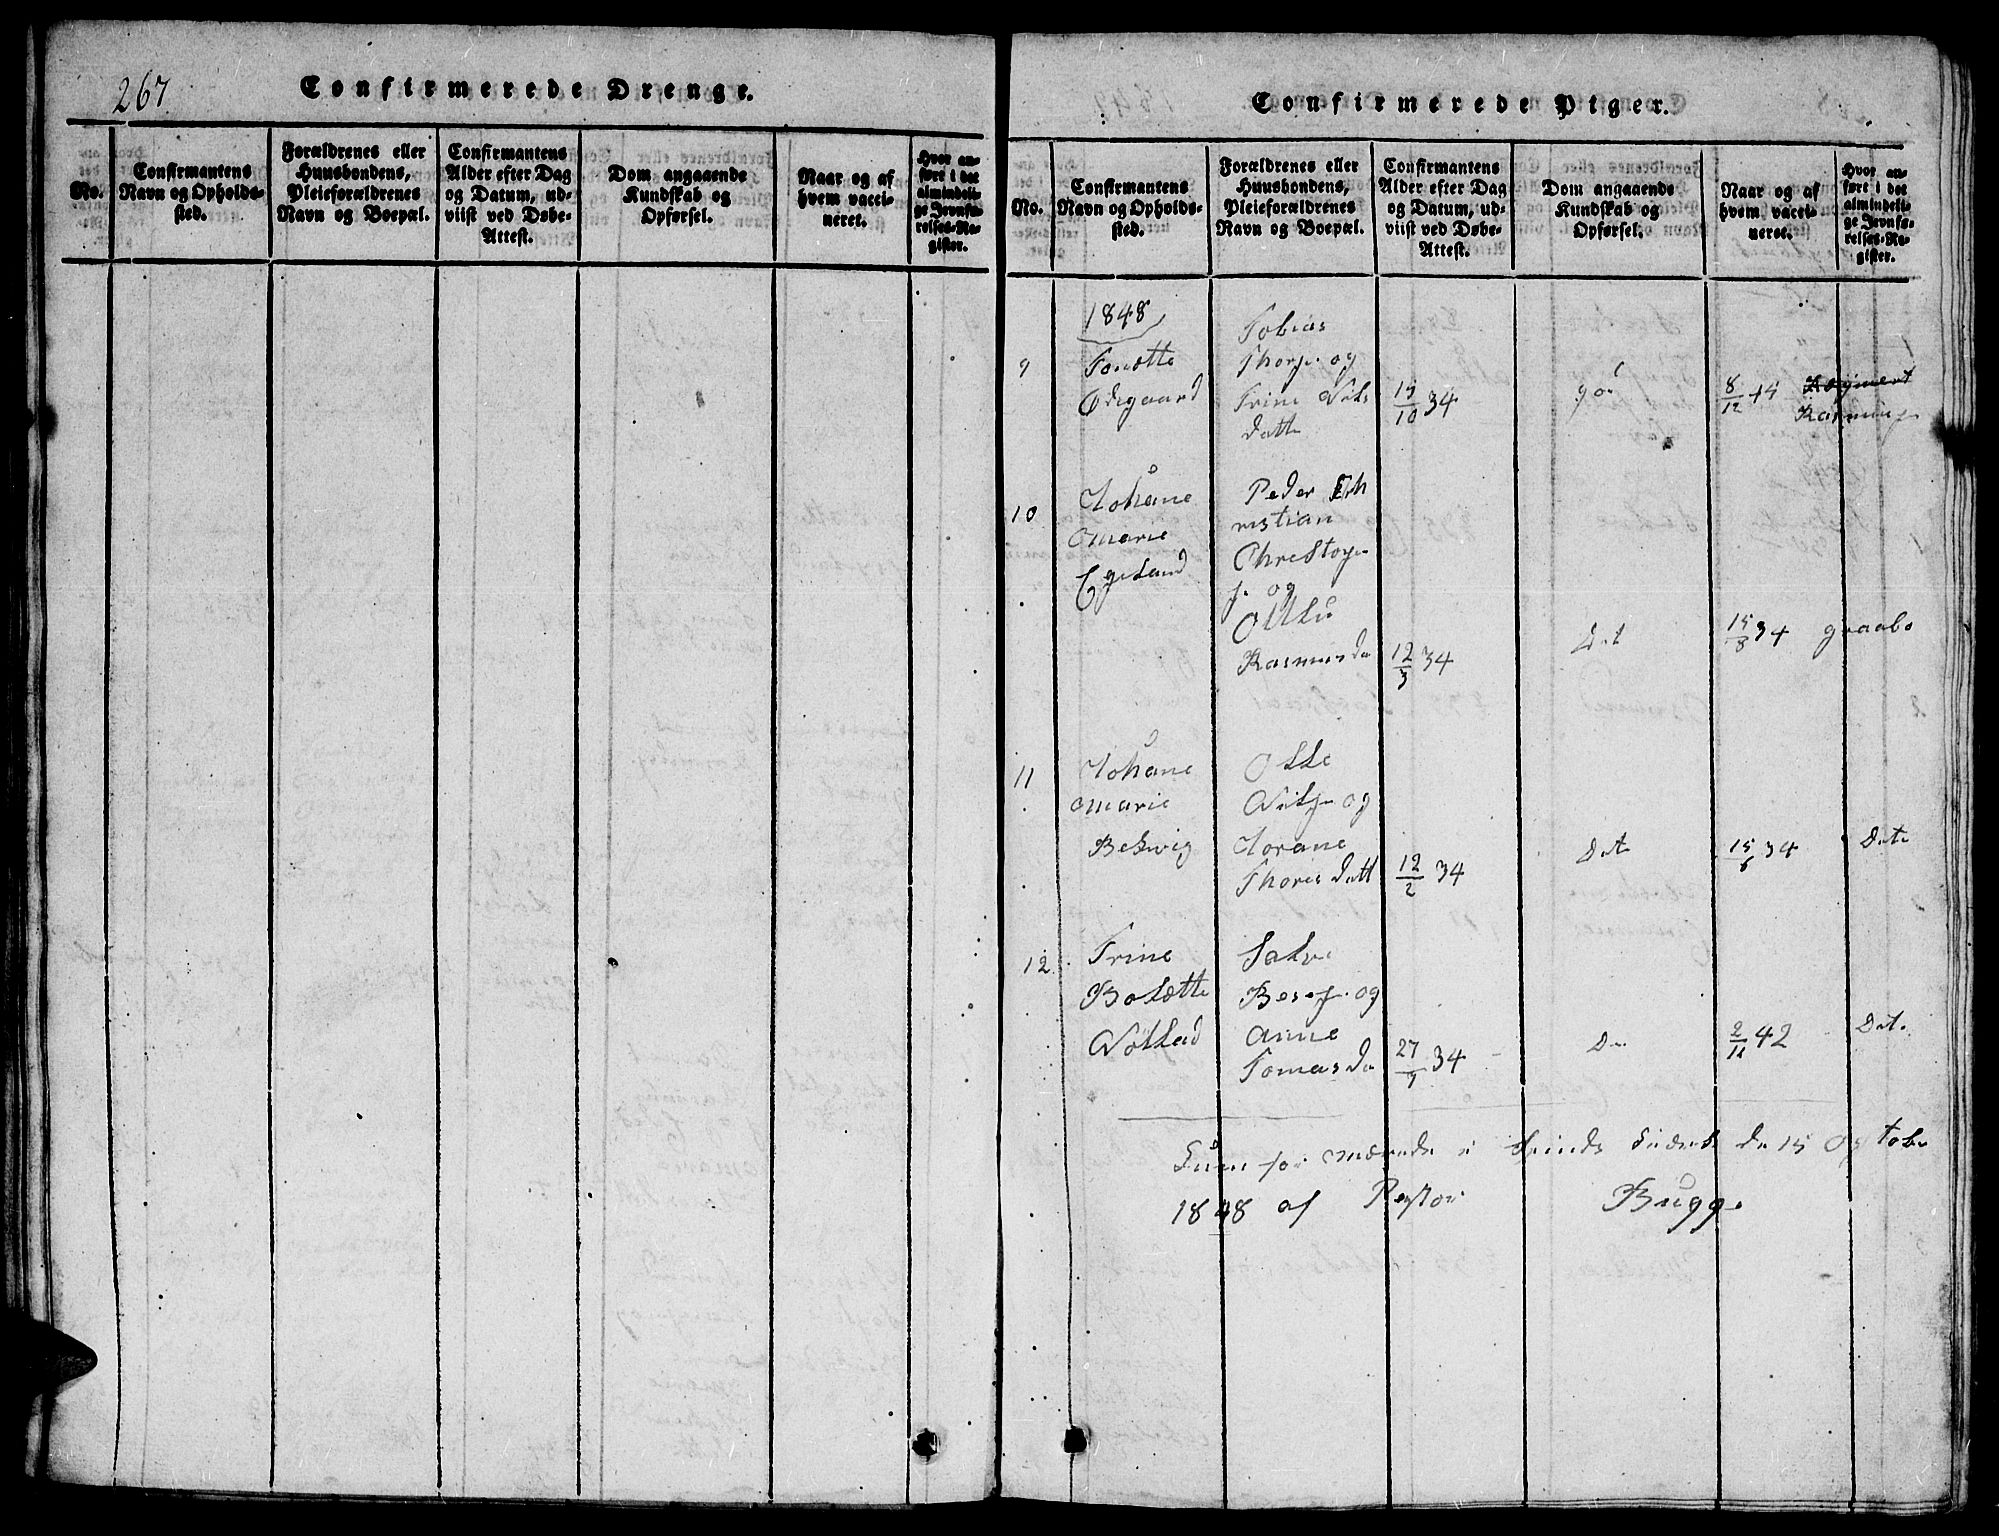 267
Confirmerede Drenge.
No.
Confirmantens
Navn og Opholds-
sted.
Forældrenes eller
Huusbondens,
Pleieforældrenes
Navn og Boepæl.
Confirmantens
Alder efter Dag
og Datum, ud-
viist ved Døbe-
Attest.
Dom angaaende
Kundskab og
Opførsel.
Naar og af
hvem vacci-
neret.
Hvor an-
ført i det
almindeli-
ge Jevnfø-
relses-Re-
gister.
Confirmerede Piger.
No.
Confirmantens
Navn og Opholds-
sted.
Forældrenes eller
Huusbondens,
Pleieforældrenes
Navn og Boepæl.
Confirmantens
Alder efter Dag
og Datum, ud-
viist ved Døbe-
Attest.
Dom angaaende
Kundskab og
Opførsel.
Naar og af
hvem vacci-
neret.
Hvor an-
ført i det
almindeli-
ge Jevnfø-
relses-Re-
gister.
1848
9
Tonette
Ødegaard
Tobias
Thorp. og
Trine Nils
datte
15/10 34
8/12 44
Rasmus
10
Johane
Marie
Egeland
Peder
ristian
Christop
f. og
Rasmusda
12/3 34
Det
15/8 34 graabo
11
Johane
Marie
Otte
og
Jorane
Thoresdatt
12/2 34
Det
15/8 34
Dete
12
Trine
Bolette
Salve
Berej. og
Anne
Tomasda
27/9 34
De
2/11 42
Dete
i Spinds de 15 Octobe
1848 af Pastor Bugge